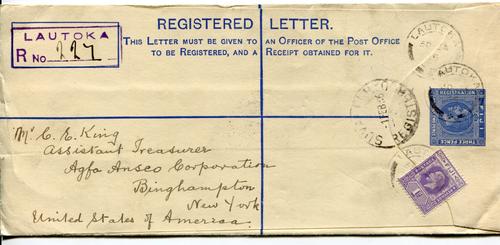 REGISTERED LETTER.
THIS LETTER MUST BE GIVEN TO AN OFFICER OF THE POST OFFICE
TO BE REGISTERED, AND A RECEIPT OBTAINED FOR IT.
LAUTOKA
R No 227
LAUTOKA
LAUTOKA
REGISTRATION
FIJI
THREE PENCE
FEB 36
Mr C. E. King
Assistant Treasurer
Agfa Ansco Corporation
Binghampton
New York
United States of America.